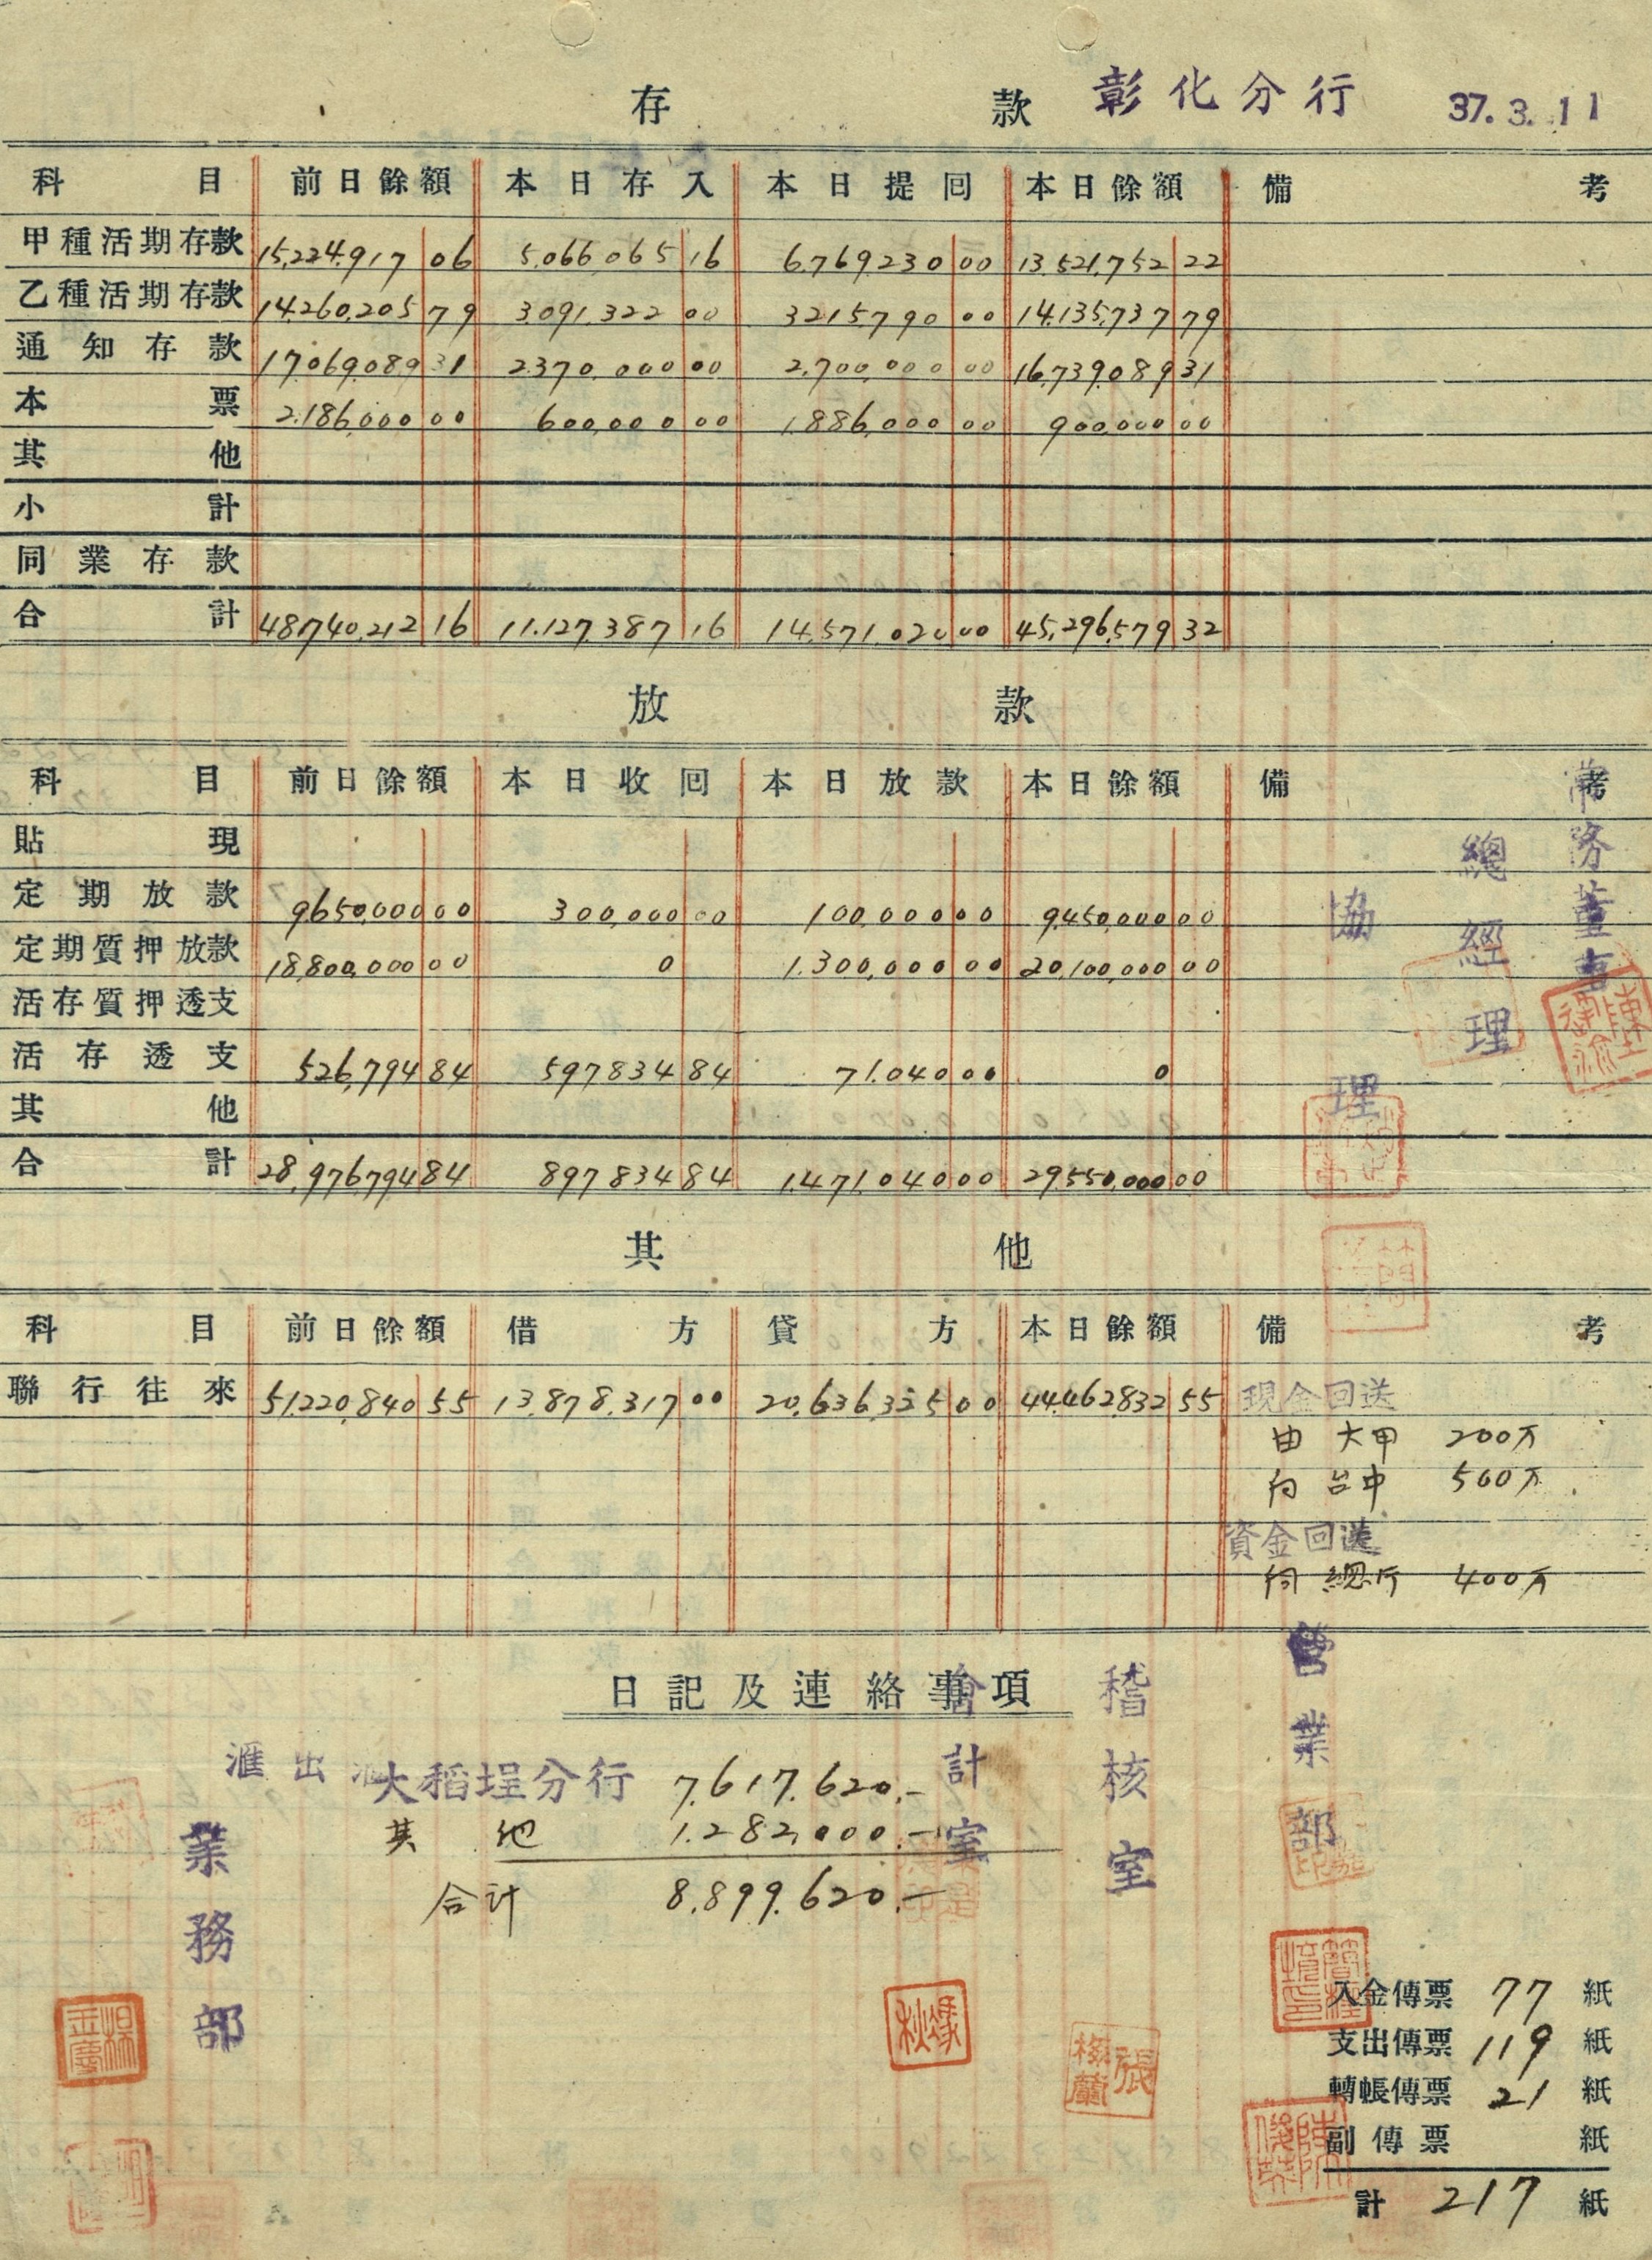 存款 彰化分行 37.3.11
科目 前日餘額 本日存入 本日提囘 本日餘額 備考
甲種活期存款 15,224,917 06 5,066,065 16 6,769,230 00 13,521,752 22
乙種活期存款 14,260,205 79 3,091,322 00 3,215,790 00 14,135,737 79
通知存款 17,069,089 31 2,370,000 00 2,700,000 00 16,739,089 31
本票 2,186,000 00 600,000 00 1,886,000 00 900,000 00
其他
小計
同業存款
合計 48,740,212 16 11,127,387 16 14,571,020 00 45,296,579 32
放款
科目 前日餘額 本日收囘 本日放款 本日餘額 備考
貼現
定期放款 9,650,000 00 300,000 00 100,000 00 9,450,000 00
定期質押放款 18,800,000 00 0 1,300,000 00 20,100,000 00
活存質押透支
活存透支 526,794 84 597,834 84 71,040 00 0
其他
合計 28,976,794 84 897,834 84 1,471,040 00 29,550,000 00
常務董事
總經理
協理
其他
科目 前日餘額 借方 貸方 本日餘額 備考
聯行往來 51,220,840 55 13,878,317 00 20,636,325 00 44,462,832 55 現金回送
由 大甲 200万
向 台中 500万
資金回送
向 總行 400万
日記及連絡事項
滙出 大稻埕分行 7,617,620.-
其他 1,282,000.-
合計 8,899,620.-
會計室
稽核室
營業部
業務部
入金傳票 77 紙
支出傳票 119 紙
轉帳傳票 21 紙
副傳票 紙
計 217 紙